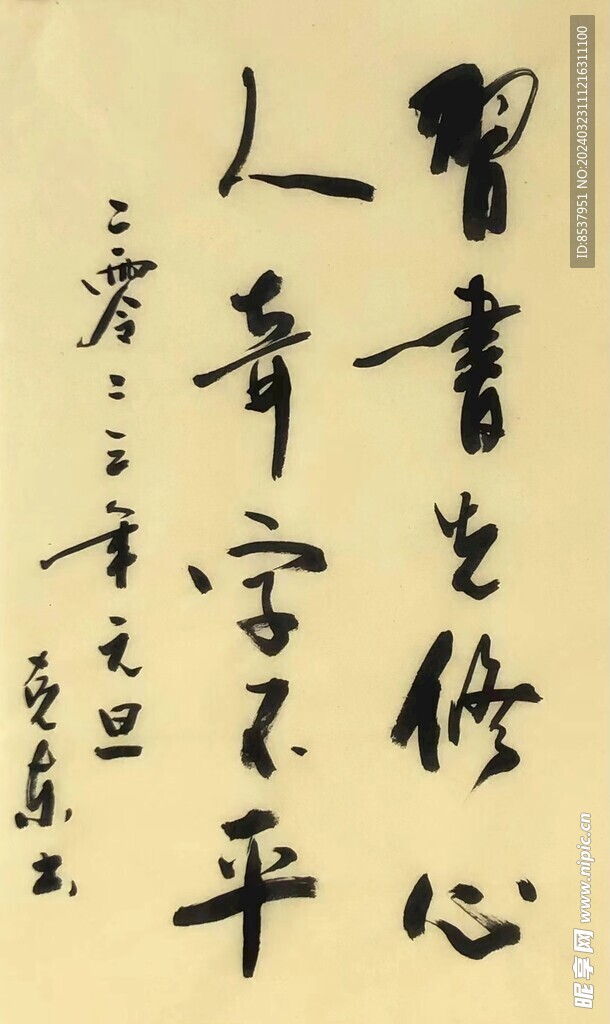 習書先修心
人奇字不平
二零二三年元旦
克东书
ID:8537951 NO:20240323111216311100
昵享网 www.nipic.cn